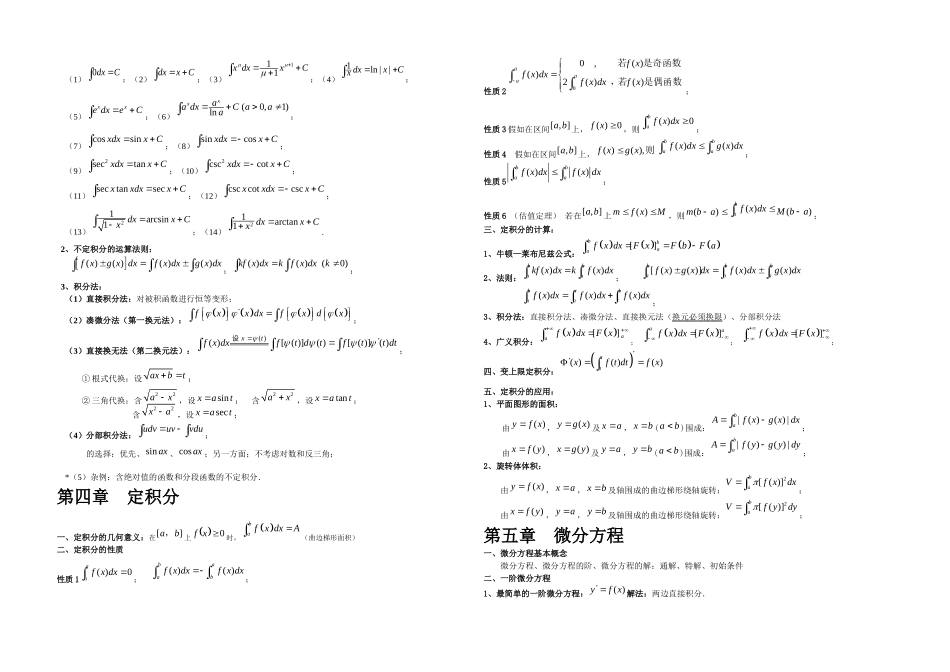 （1）∫0dx=C；（2）∫dx=x+C；（3）∫x^μ dx=1/(μ+1) x^(μ+1)+C；（4）∫1/x dx=ln|x|+C；
（5）∫e^x dx=e^x+C；（6）∫a^x dx=a^x/ln a+C (a>0, a≠1)；
（7）∫cos xdx=sin x+C；（8）∫sin xdx=−cos x+C；
（9）∫sec² xdx=tan x+C；（10）∫csc² xdx=−cot x+C；
（11）∫sec x tan xdx=sec x+C；（12）∫csc x cot xdx=−csc x+C；
（13）∫1/√(1−x²) dx=arcsin x+C；（14）∫1/(1+x²) dx=arctan x+C．
2、不定积分的运算法则：
∫[f(x)±g(x)]dx=∫f(x)dx±∫g(x)dx；∫kf(x)dx=k∫f(x)dx (k≠0)；
3、积分法：
（1）直接积分法：对被积函数进行恒等变形；
（2）凑微分法（第一换元法）：∫f[φ(x)]φ'(x)dx=∫f[φ(x)]d[φ(x)]；
（3）直接换无法（第二换元法）：∫f(x)dx 设x=ψ(t) ∫f[ψ(t)]dψ(t)=∫f[ψ(t)]ψ'(t)dt；
①根式代换：设√(ax+b)=t；
②三角代换：含√(a²−x²)，设x=a sin t；含√(a²+x²)，设x=a tan t；
含√(x²−a²)，设x=a sec t；
（4）分部积分法：∫udv=uv−∫vdu；
的选择：优先、sin ax、cos ax；另一方面：不考虑对数和反三角；
*（5）杂例：含绝对值的函数和分段函数的不定积分．
第四章 定积分
一、定积分的几何意义：在[a，b]上f(x)≥0时，∫_a^b f(x)dx=A（曲边梯形面积）
二、定积分的性质
性质1 ∫_a^a f(x)dx=0；∫_a^b f(x)dx=−∫_b^a f(x)dx；
性质2 ∫_{−a}^a f(x)dx={0，若f(x)是奇函数
2∫_0^a f(x)dx，若f(x)是偶函数；
性质3 假如在区间[a,b]上，f(x)≥0，则∫_a^b f(x)dx≥0；
性质4 假如在区间[a,b]上，f(x)≤g(x),则∫_a^b f(x)dx≤∫_a^b g(x)dx；
性质5 |∫_a^b f(x)dx|≤∫_a^b|f(x)|dx；
性质6（估值定理）若在[a,b]上m≤f(x)≤M，则m(b−a)≤∫_a^b f(x)dx≤M(b−a)；
三、定积分的计算：
1、牛顿—莱布尼兹公式：∫_a^b f(x)dx=[F(x)]_a^b=F(b)−F(a)
2、法则：∫_a^b kf(x)dx=k∫_a^b f(x)dx；∫_a^b[f(x)±g(x)]dx=∫_a^b f(x)dx±∫_a^b g(x)dx
∫_a^b f(x)dx=∫_a^c f(x)dx+∫_c^b f(x)dx；
3、积分法：直接积分法、凑微分法、直接换元法（换元必须换限）、分部积分法
4、广义积分：∫_a^{+∞} f(x)dx=[F(x)]_a^{+∞}；∫_{−∞}^a f(x)dx=[F(x)]_{−∞}^a；∫_{−∞}^{+∞} f(x)dx=[F(x)]_{−∞}^{+∞}；
四、变上限定积分：Φ'(x)=(∫_a^x f(t)dt)'=f(x)
五、定积分的应用：
1、平面图形的面积：
由y=f(x)，y=g(x)及x=a，x=b(a<b)围成：A=∫_a^b|f(x)−g(x)|dx；
由x=f(y)，x=g(y)及y=a，y=b(a<b)围成：A=∫_a^b|f(y)−g(y)|dy；
2、旋转体体积：
由y=f(x)，x=a，x=b及轴围成的曲边梯形绕轴旋转：V=∫_a^b π[f(x)]²dx；
由x=f(y)，y=a，y=b及轴围成的曲边梯形绕轴旋转：V=∫_a^b π[f(y)]²dy；
第五章 微分方程
一、微分方程基本概念
微分方程、微分方程的阶、微分方程的解：通解、特解、初始条件
二、一阶微分方程
1、最简单的一阶微分方程：y'=f(x)解法：两边直接积分．